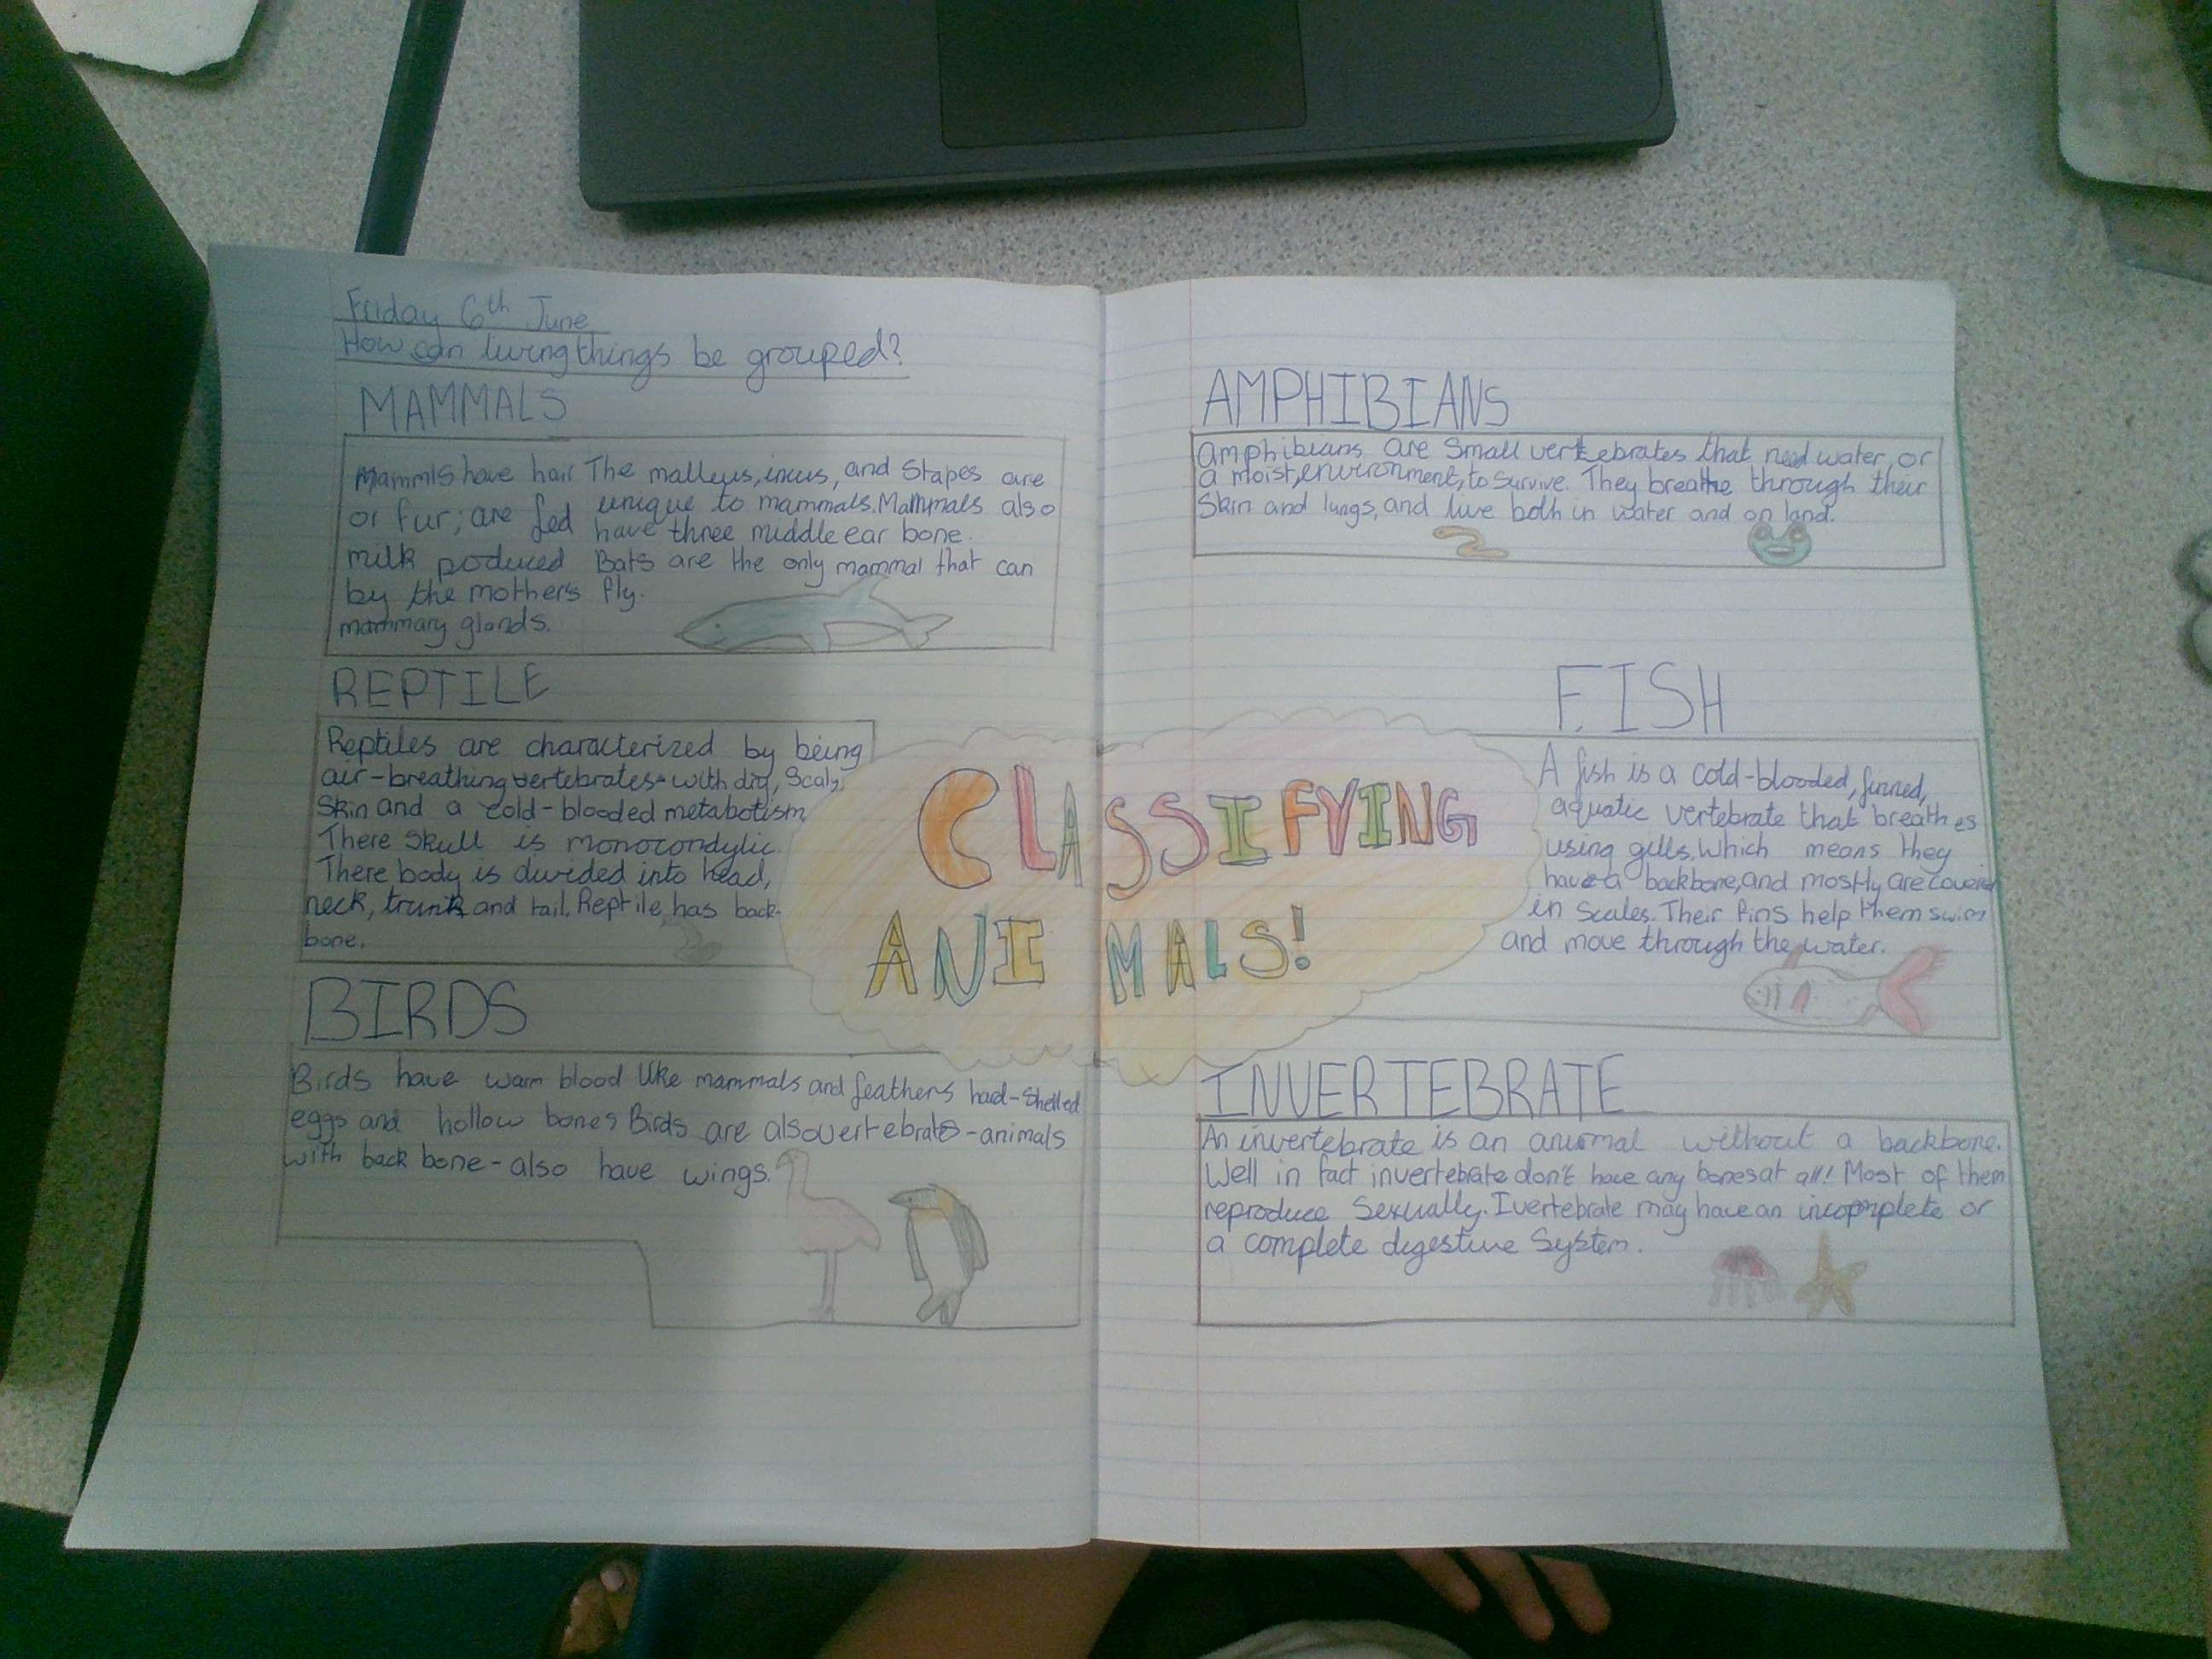 Friday 6th June
How can living things be grouped?
MAMMALS
Mammls have hair
or fur; are fed
milk produced
by the mothers
mammary glands.
The malleus, incus, and Stapes are
unique to mammals. Mammals also
have three middle ear bone.
Bats are the only mammal that can
fly.
REPTILE
Reptiles are characterized by being
air-breathing vertebrates with dry, Scaly
Skin and a cold-blooded metabotism
There Skull is monocondylic.
There body is divided into head,
neck, trunk and tail. Reptile has back-
bone.
BIRDS
Birds have warm blood like mammals and feathers hard-shelled
eggs and hollow bones Birds are also vertebrates - animals
with back bone - also have wings.
CLASSIFYING
ANIMALS!
AMPHIBIANS
Amphibians are Small vertebrates that need water, or
a moist, environment, to survive. They breathe through their
Skin and lungs, and live both in water and on land.
FISH
A fish is a cold-blooded, finned,
aquatic vertebrate that breathes
using gills. Which means they
have a backbone, and mostly are covered
in Scales. Their fins help them swim
and move through the water.
INVERTEBRATE
An invertebrate is an animal without a backbone.
Well in fact invertebrate don't have any bones at all! Most of them
reproduce Sexually. Ivertebrate may have an incomplete or
a complete digestive System.